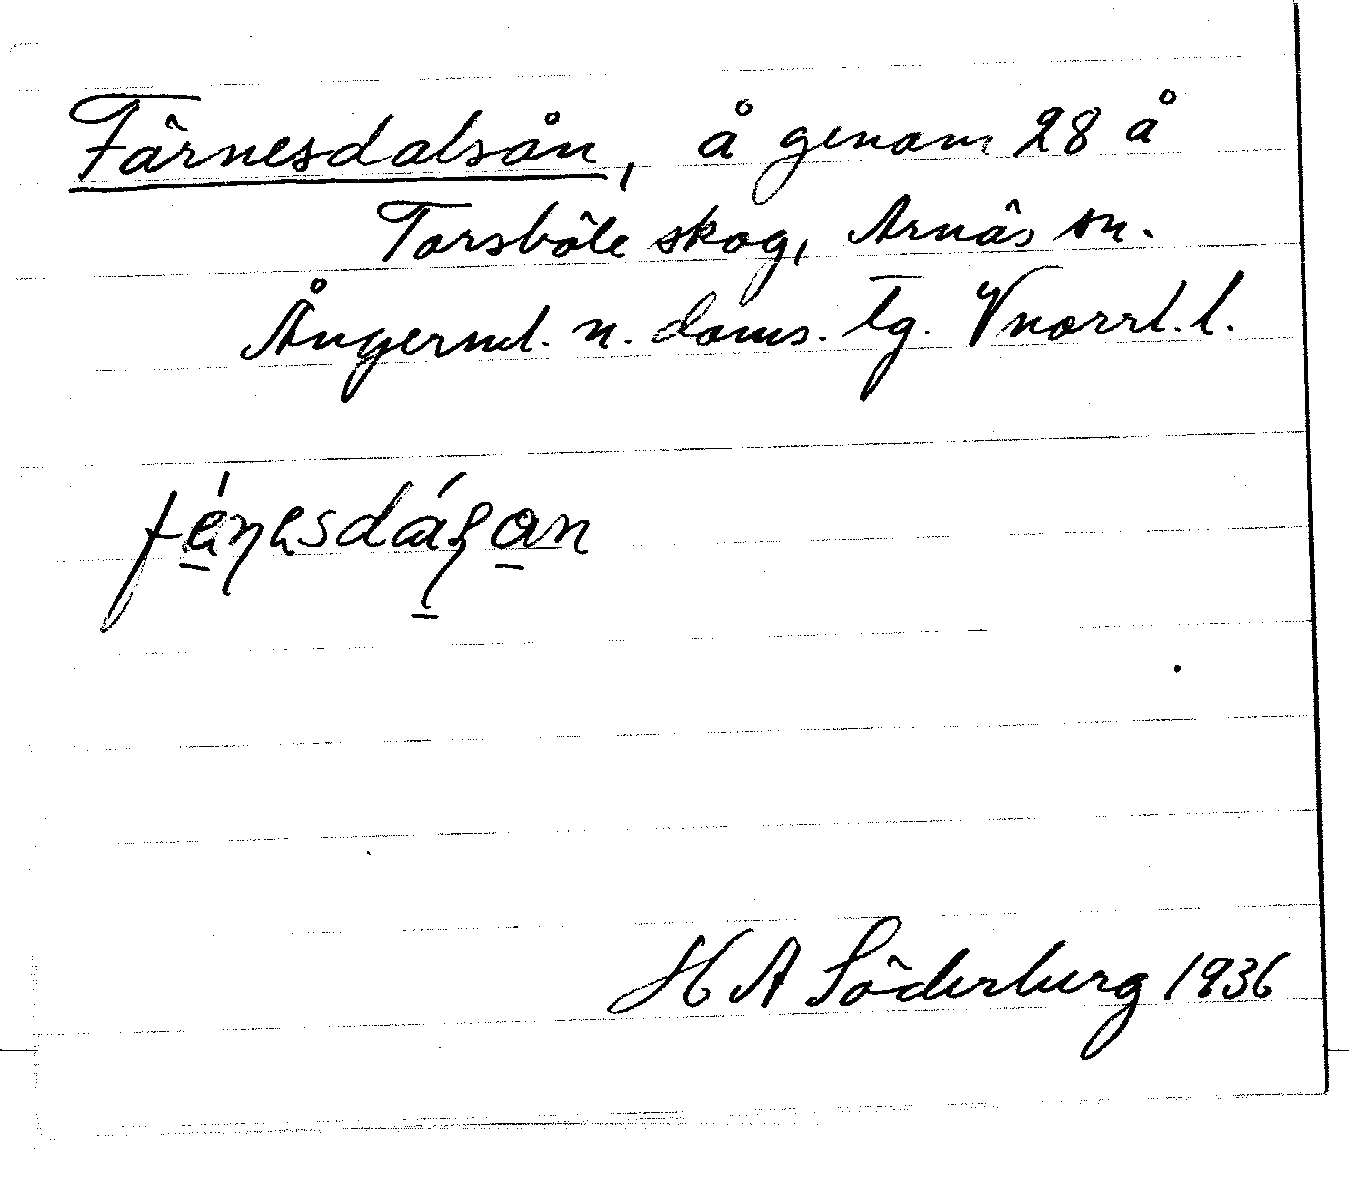 Färnesdalsån, å genom 28 å
Torsböle skog, Arnäs sn.
Ångerml. n. doms. Tg. Vnorrl. l.
H A Söderberg 1936